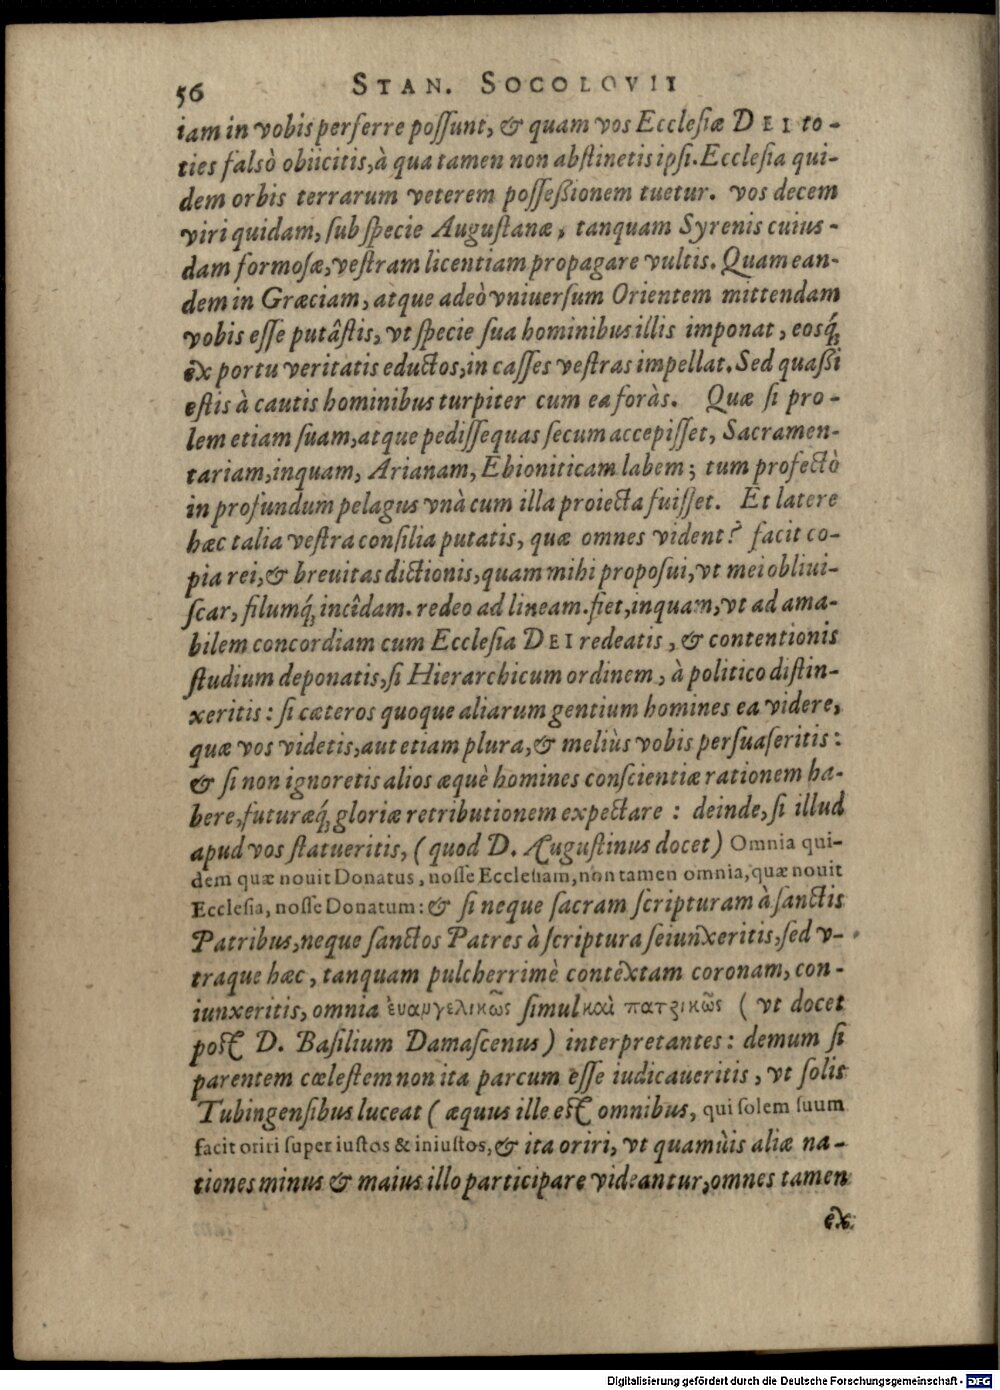 56 STAN. SOCOLOVII
iam in vobis perferre possunt, & quam vos Ecclesiæ DEI to-
ties falsò obiicitis, à qua tamen non abstinetis ipsi. Ecclesia qui-
dem orbis terrarum veterem possessionem tuetur. vos decem
viri quidam, sub specie Augustanæ, tanquam Syrenis cuius-
dam formosæ, vestram licentiam propagare vultis. Quam ean-
dem in Græciam, atque adeò vniuersum Orientem mittendam
vobis esse putâstis, vt specie sua hominibus illis imponat, eosq́;
ex portu veritatis eductos, in casses vestras impellat. Sed quassi
estis à cautis hominibus turpiter cum ea foràs. Quæ si pro-
lem etiam suam, atque pedissequas secum accepisset, Sacramen-
tariam, inquam, Arianam, Ebioniticam labem; tum profectò
in profundum pelagus vnà cum illa proiecta fuisset. Et latere
hæc talia vestra consilia putatis, quæ omnes vident? facit co-
pia rei, & breuitas dictionis, quam mihi proposui, vt mei obliui-
scar, filumq́; incîdam. redeo ad lineam. fiet, inquam, vt ad ama-
bilem concordiam cum Ecclesia DEI redeatis, & contentionis
studium deponatis, si Hierarchicum ordinem, à politico distin-
xeritis: si cæteros quoque aliarum gentium homines ea videre,
quæ vos videtis, aut etiam plura, & meliùs vobis persuaseritis:
& si non ignoretis alios æquè homines conscientiæ rationem ha-
bere, futuræq́; gloriæ retributionem expectare: deinde, si illud
apud vos statueritis, (quod D. Augustinus docet) Omnia qui-
dem quæ nouit Donatus, nosse Ecclesiam, non tamen omnia, quæ nouit
Ecclesia, nosse Donatum: & si neque sacram scripturam à sanctis
Patribus, neque sanctos Patres à scriptura seiunxeritis, sed v-
traque hæc, tanquam pulcherrimè contextam coronam, con-
iunxeritis, omnia ἐυαγγελικῶς simul καὶ πατρικῶς (vt docet
post D. Basilium Damascenus) interpretantes: demum si
parentem cœlestem non ita parcum esse iudicaueritis, vt solis
Tubingensibus luceat (æquus ille est omnibus, qui solem suum
facit oriri super iustos & iniustos, & ita oriri, vt quamuis aliæ na-
tiones minus & maius illo participare videantur, omnes tamen
ex
Digitalisierung gefördert durch die Deutsche Forschungsgemeinschaft - DFG